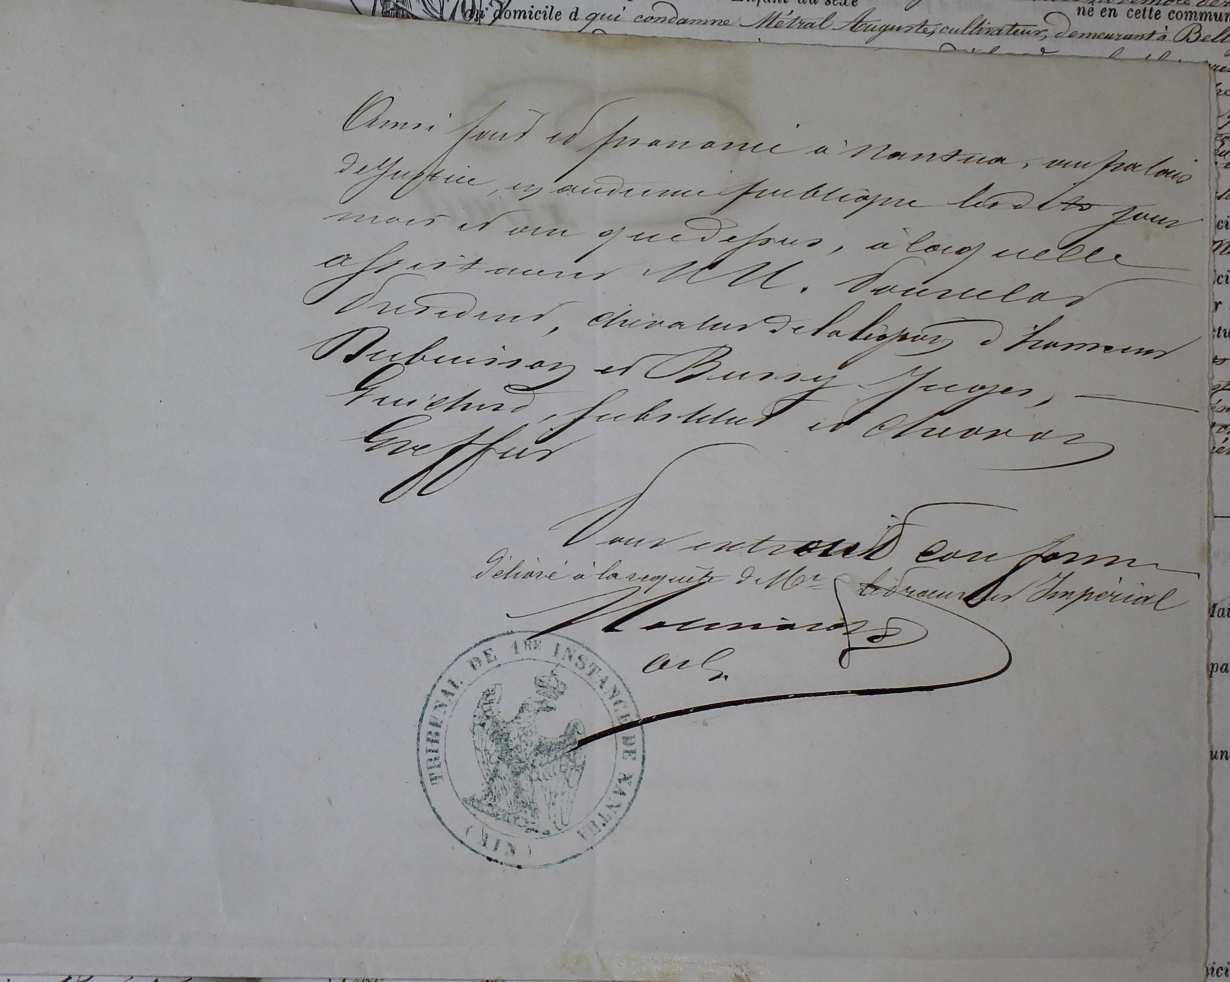 Enfant du sexe
né en cette commu
au domicile d qui condamne Métral Auguste, cultivateur, demeurant à Bell
Ainsi fait et prononcé à Nantua, au palais
de Justice, en audience publique lesdits jour
mois et an que dessus, à laquelle
assistaient MM.
Président, chevalier de la légion d'honneur
Dubuisson et Bussy Juges,
Guichard, substitut et Chevron
Greffier
Pour extrait conforme
délivré à la requête de Mr le Procureur Impérial
TRIBUNAL DE 1RE INSTANCE DE NANTUA
(AIN)